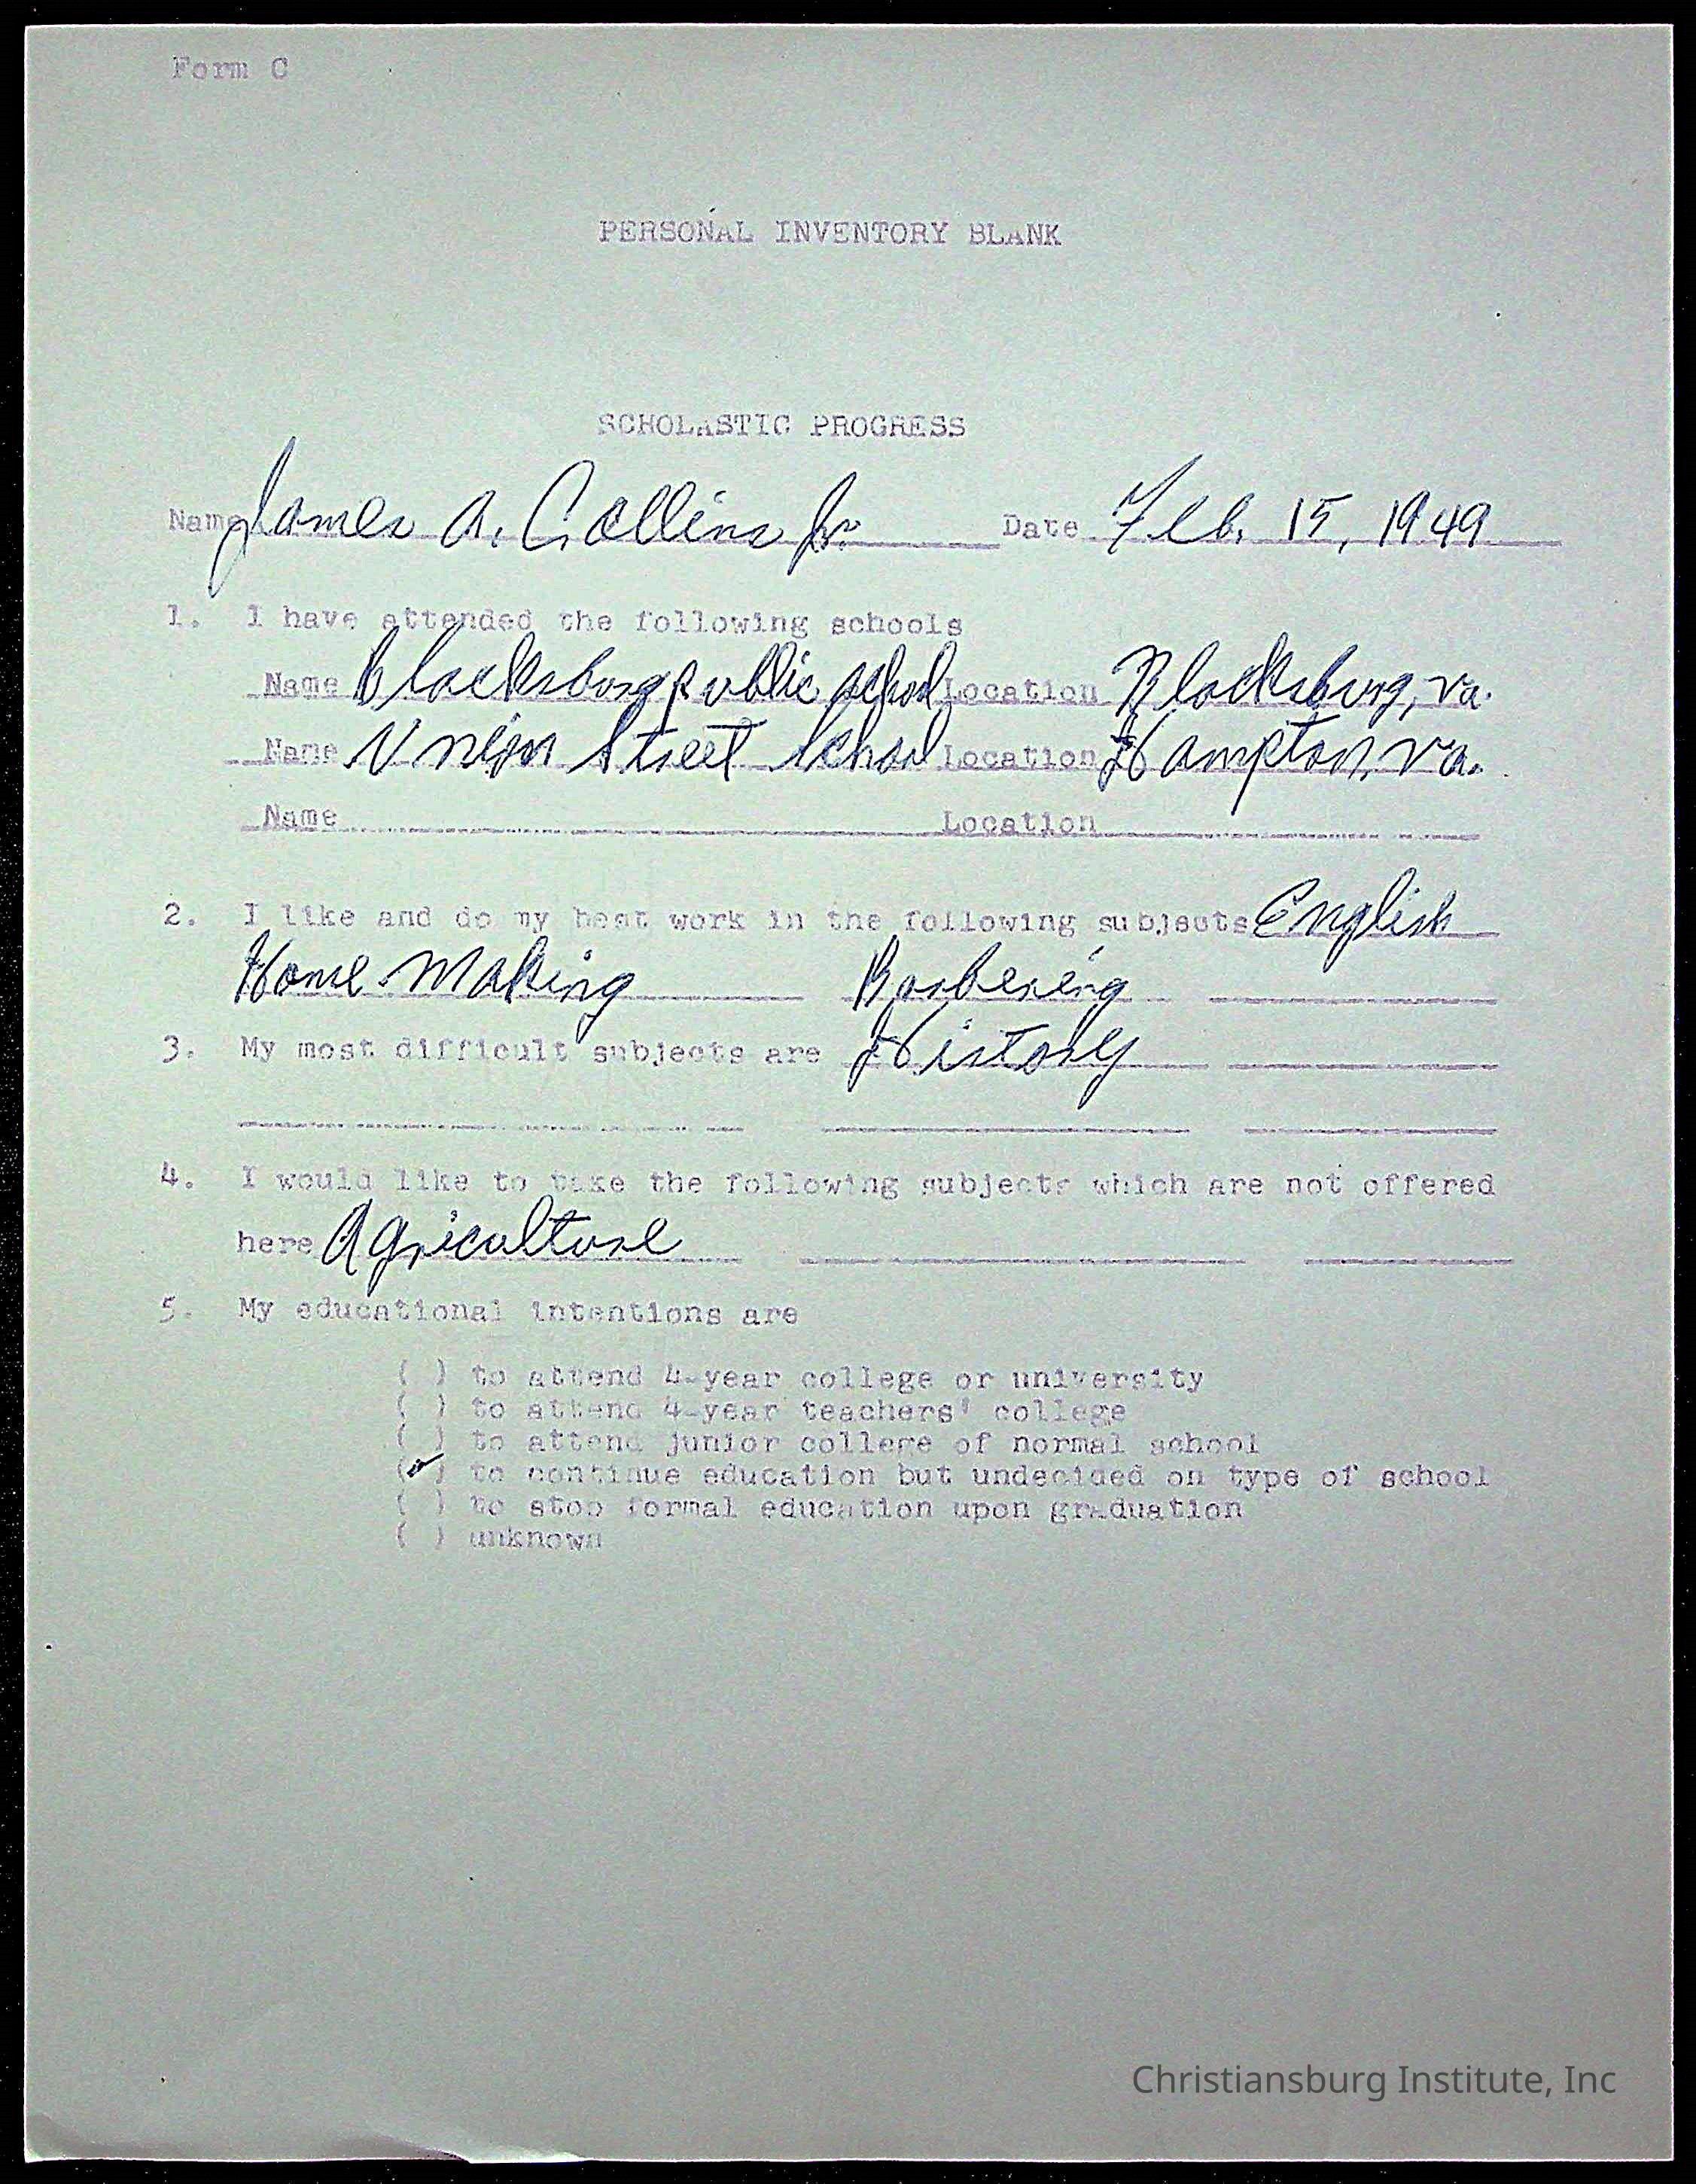 Form C
PERSONAL INVENTORY BLANK
SCHOLASTIC PROGRESS
Name James A. Collins Jr. Date Feb. 15, 1949
1. I have attended the following schools
Name Blacksburg Public School Location Blacksburg, Va.
Name Union Street School Location Hampton, Va.
Name Location
2. I like and do my best work in the following subjects English
Home Making Barbering
3. My most difficult subjects are History
4. I would like to take the following subjects which are not offered
here Agriculture
5. My educational intentions are
( ) to attend 4-year college or university
( ) to attend 4-year teachers' college
( ) to attend junior college of normal school
(✓) to continue education but undecided on type of school
( ) to stop formal education upon graduation
( ) unknown
Christiansburg Institute, Inc